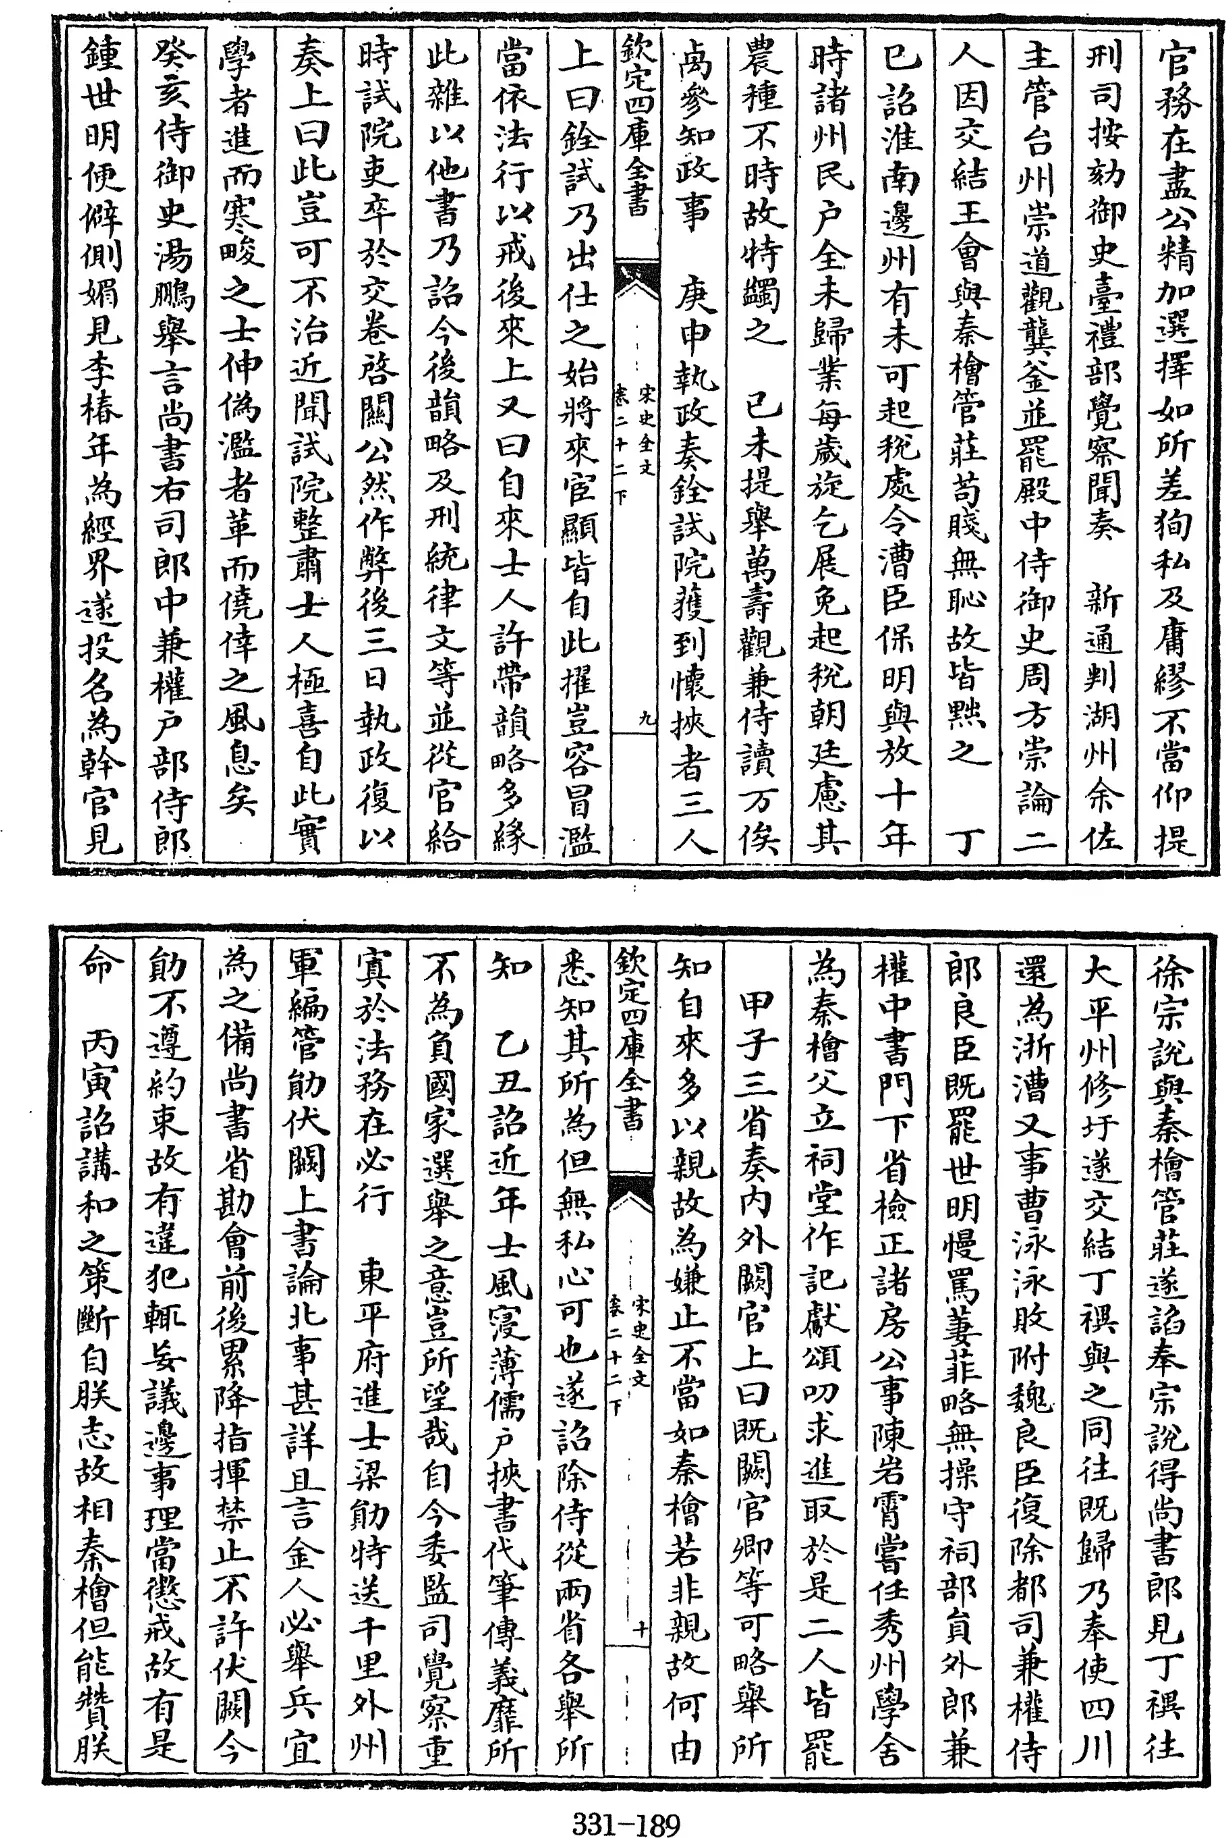 官務在盡公精加選擇如所差狥私及庸繆不當仰提
刑司按劾御史臺禮部覺察聞奏　新通判湖州余佐
主管台州崇道觀龔釜並罷殿中侍御史周方崇論二
人因交結王會與秦檜管莊苟賤無恥故皆黜之　丁
巳詔淮南邊州有未可起稅處令漕臣保明與放十年
時諸州民户全未歸業每歲旋乞展免起稅朝廷慮其
農種不時故特蠲之　己未提舉萬壽觀兼侍讀万俟
卨參知政事　庚申執政奏銓試院獲到懷挾者三人
欽定四庫全書
宋史全文
卷二十二下
九
上曰銓試乃出仕之始將來宦顯皆自此擢豈容冒濫
當依法行以戒後來上又曰自來士人許帶韻略多緣
此雜以他書乃詔今後韻略及刑統律文等並從官給
時試院吏卒於交卷啓關公然作弊後三日執政復以
奏上曰此豈可不治近聞試院整肅士人極喜自此實
學者進而寒畯之士伸偽濫者革而僥倖之風息矣
癸亥侍御史湯鵬舉言尚書右司郎中兼權户部侍郎
鍾世明便僻側媚見李椿年為經界遂投名為幹官見
徐宗說與秦檜管莊遂諂奉宗說得尚書郎見丁禩往
大平州修圩遂交結丁禩與之同往既歸乃奉使四川
還為浙漕又事曹泳泳敗附魏良臣復除都司兼權侍
郎良臣既罷世明慢罵萋菲略無操守祠部員外郎兼
權中書門下省檢正諸房公事陳岩霄嘗任秀州學舍
為秦檜父立祠堂作記獻頌叨求進取於是二人皆罷
甲子三省奏内外闕官上曰既闕官卿等可略舉所
知自來多以親故為嫌止不當如秦檜若非親故何由
欽定四庫全書
宋史全文
卷二十二下
十
悉知其所為但無私心可也遂詔除侍從兩省各舉所
知　乙丑詔近年士風寖薄儒户挾書代筆傳義靡所
不為負國家選舉之意豈所望哉自今委監司覺察重
寘於法務在必行　東平府進士梁勛特送千里外州
軍編管勛伏闕上書論北事甚詳且言金人必舉兵宜
為之備尚書省勘會前後累降指揮禁止不許伏闕今
勛不遵約束故有違犯輒妄議邊事理當懲戒故有是
命　丙寅詔講和之策斷自朕志故相秦檜但能贊朕
331-189